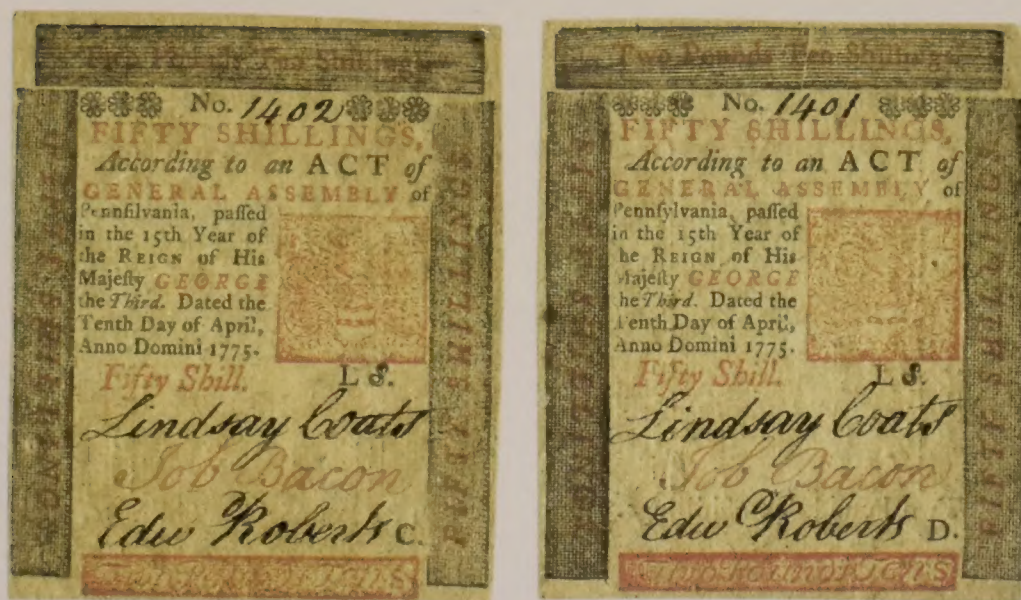 Two Pounds Ten Shillings
No. 1402
FIFTY SHILLINGS,
According to an ACT of
GENERAL ASSEMBLY of
Pennsilvania, passed
in the 15th Year of
the REIGN of His
Majesty GEORGE
the Third. Dated the
Tenth Day of April,
Anno Domini 1775.
Fifty Shill. L S.
Lindsay Coats
Job Bacon
Edw Roberts C.
FIFTY SHILLINGS
Two Pounds Ten Shillings
No. 1401
FIFTY SHILLINGS,
According to an ACT of
GENERAL ASSEMBLY of
Pennsylvania, passed
in the 15th Year of
the REIGN of His
Majesty GEORGE
he Third. Dated the
Tenth Day of April,
Anno Domini 1775.
Fifty Shill. L S.
Lindsay Coats
Job Bacon
Edw Roberts D.
FIFTY SHILLINGS